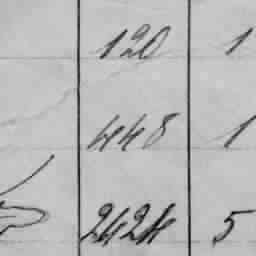 120 1
448 1
2424 5